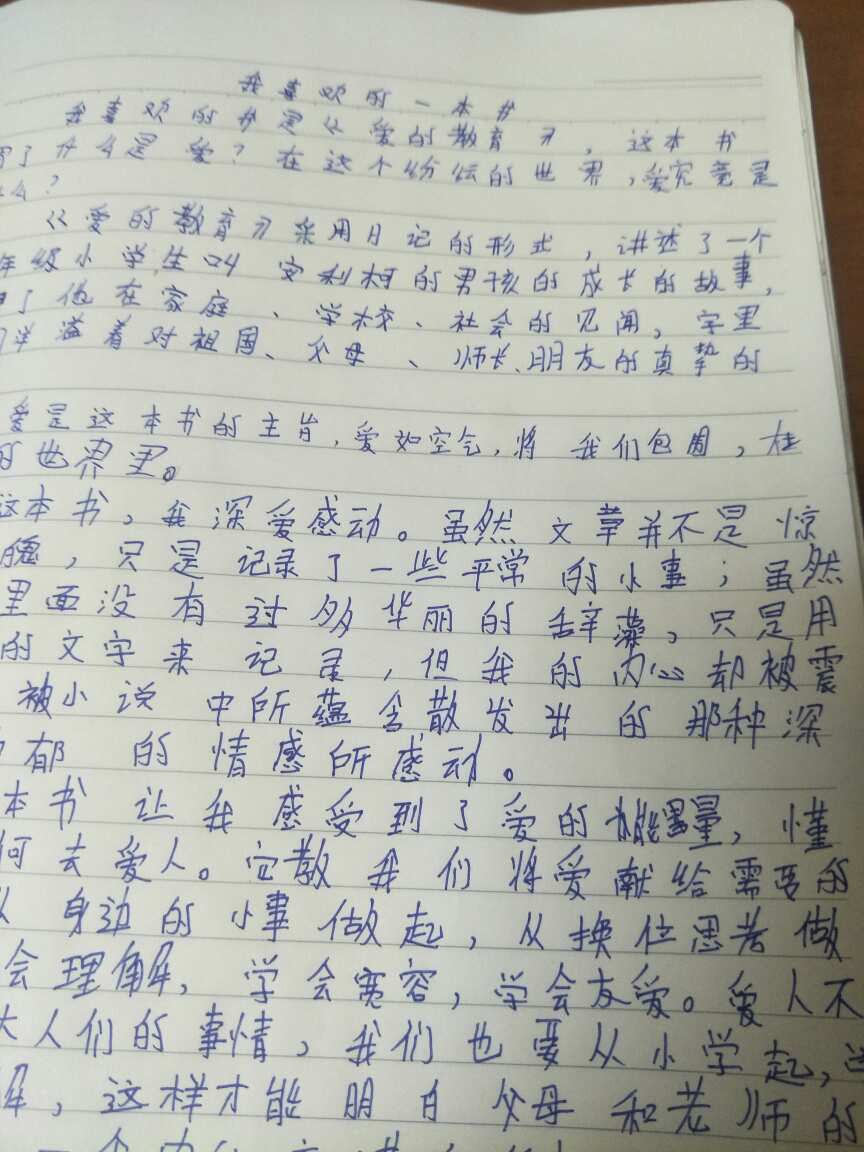 我喜欢的一本书
我喜欢的书是《爱的教育》，这本书
了什么是爱？在这个纷纭的世界，爱究竟是
么？
《爱的教育》采用日记的形式，讲述了一个
年级小学生叫安利柯的男孩的成长的故事，
了他在家庭、学校、社会的见闻，字里
洋溢着对祖国、父母、师长、朋友的真挚的
爱是这本书的主旨，爱如空气，将我们包围，在
的世界里。
这本书，我深爱感动。虽然文章并不是惊
魄，只是记录了一些平常的小事；虽然
里面没有过多华丽的辞藻，只是用
的文字来记录，但我的内心却被震
被小说中所蕴含散发出的那种深
郁的情感所感动。
本书让我感受到了爱的能量，懂
何去爱人。它教我们将爱献给需要的
从身边的小事做起，从换位思考做
会理解，学会宽容，学会友爱。爱人不
大人们的事情，我们也要从小学起，
解，这样才能明白父母和老师的
一个